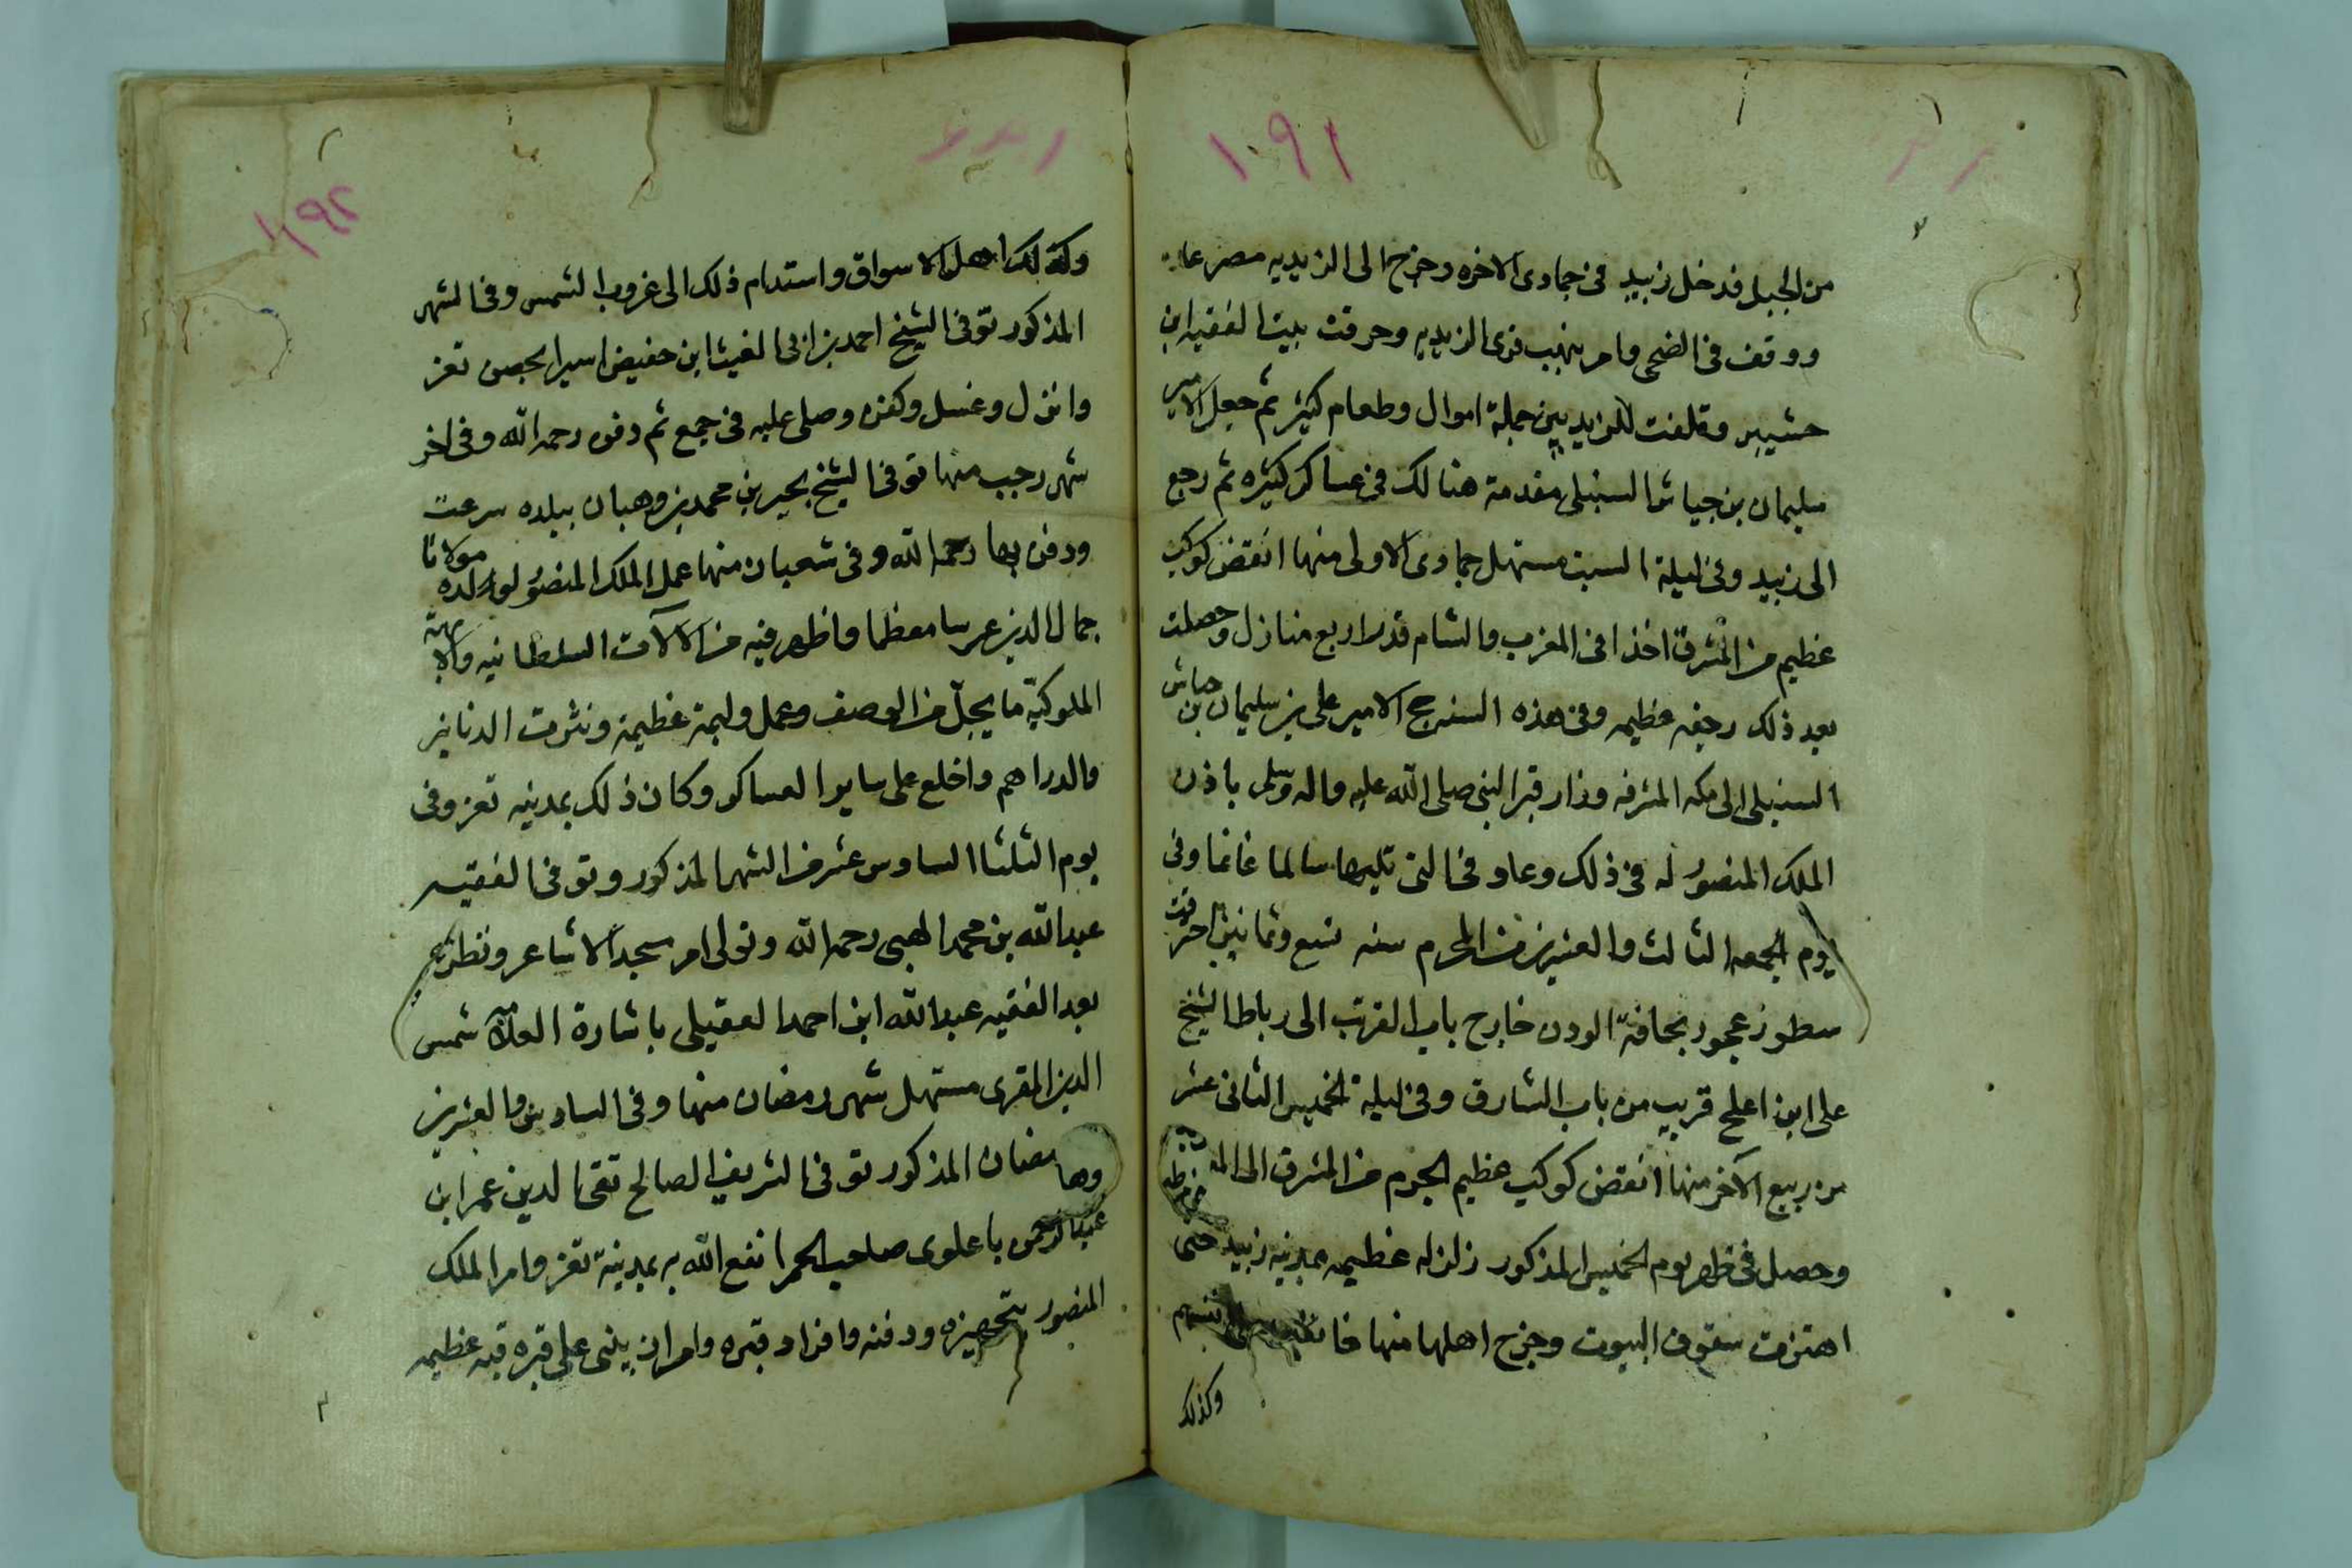 ١٠٩١
من الجبل فدخل زبيد في جمادى الاخره وخرج الى الزيديه مصر عا
ووقف في الضحى وامر بنهب قرى الزيديه وحرقت بيت الفقيه ابن
حشيبر وتلفت للزيديين جملة اموال وطعام كثير ثم جعل الامير
سليمان بن جياش السنبلى مقدمة هنالك في عساكر كثيره ثم رجع
الى زبيد وفي ليلة السبت مستهل جمادى الاولى منها انقض كوكب
عظيم من المشرق اخذا في المغرب والشام قدر اربع منازل وحصلت
بعد ذلك رجفه عظيمه وفي هذه السنه حج الامير على بن سليمان بن جياش
السنبلى الى مكه المشرفه وزار قبر النبي صلى الله عليه واله وسلم باذن
الملك المنصور له في ذلك وعاد في التي تليها سالما غانما وفي
يوم الجمعه الثالث والعشرين من المحرم سنه تسع وثمانين احترقت
سطور عجور بحافة الودن خارج باب القرتب الى رباط الشيخ
على ابن افلح قريب من باب الشارق وفي ليلة الخميس الثاني عشر
من ربيع الآخر منها انقض كوكب عظيم الجرم من المشرق الى المغرب
وحصل في ظهر يوم الخميس المذكور زلزله عظيمه بمدينه زبيد حتى
اهتزت سقوف البيوت وخرج اهلها منها خائفين على انفسهم
وكذلك
١٩٢
وكذلك اهل الاسواق واستدام ذلك الى غروب الشمس وفي الشهر
المذكور توفى الشيخ احمد بن ابي الغيث ابن حفيص اسيرا بحصن تعز
وانزل وغسل وكفن وصلى عليه في جمع ثم دفن رحمه الله وفي اخر
شهر رجب منها توفى الشيخ بحير بن محمد بن وهبان ببلده سرعت
ودفن بها رحمه الله وفي شعبان منها عمل الملك المنصور لولده مولانا
جمال الدين عرسا معظما واظهر فيه من الآلات السلطانيه والابهة
الملوكيّة ما يجلّ من الوصف وعمل وليمة عظيمة ونثرت الدنانير
والدراهم واخلع على ساير العساكر وكان ذلك بمدينه تعز وفي
يوم الثلثا السادس عشر من الشهر المذكور وتوفى الفقيه
عبد الله بن محمد الهبى رحمه الله وتولى امر مسجد الاشاعر ونظره
بعد الفقيه عبد الله ابن احمد العقيلى باشارة العلامه شمس
الدين المقرى مستهل شهر رمضان منها وفي السادس والعشرين
من رمضان المذكور توفى الشريف الصالح تقى الدين عمر ابن
عبد الرحمن باعلوى صاحب الحمرا نفع الله به بمدينة تعز وامر الملك
المنصور بتجهيزه ودفنه وافراد قبره وامر ان يبنى على قبره قبه عظيمه